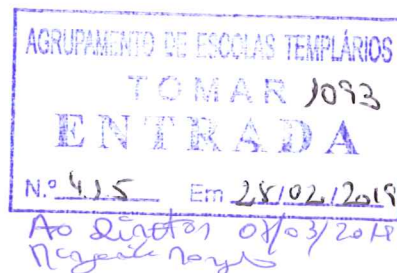 AGRUPAMENTO DE ESCOLAS TEMPLÁRIOS
TOMAR 1093
ENTRADA
N.º 415 Em 28/02/2019
Ao Diretor 08/03/2019